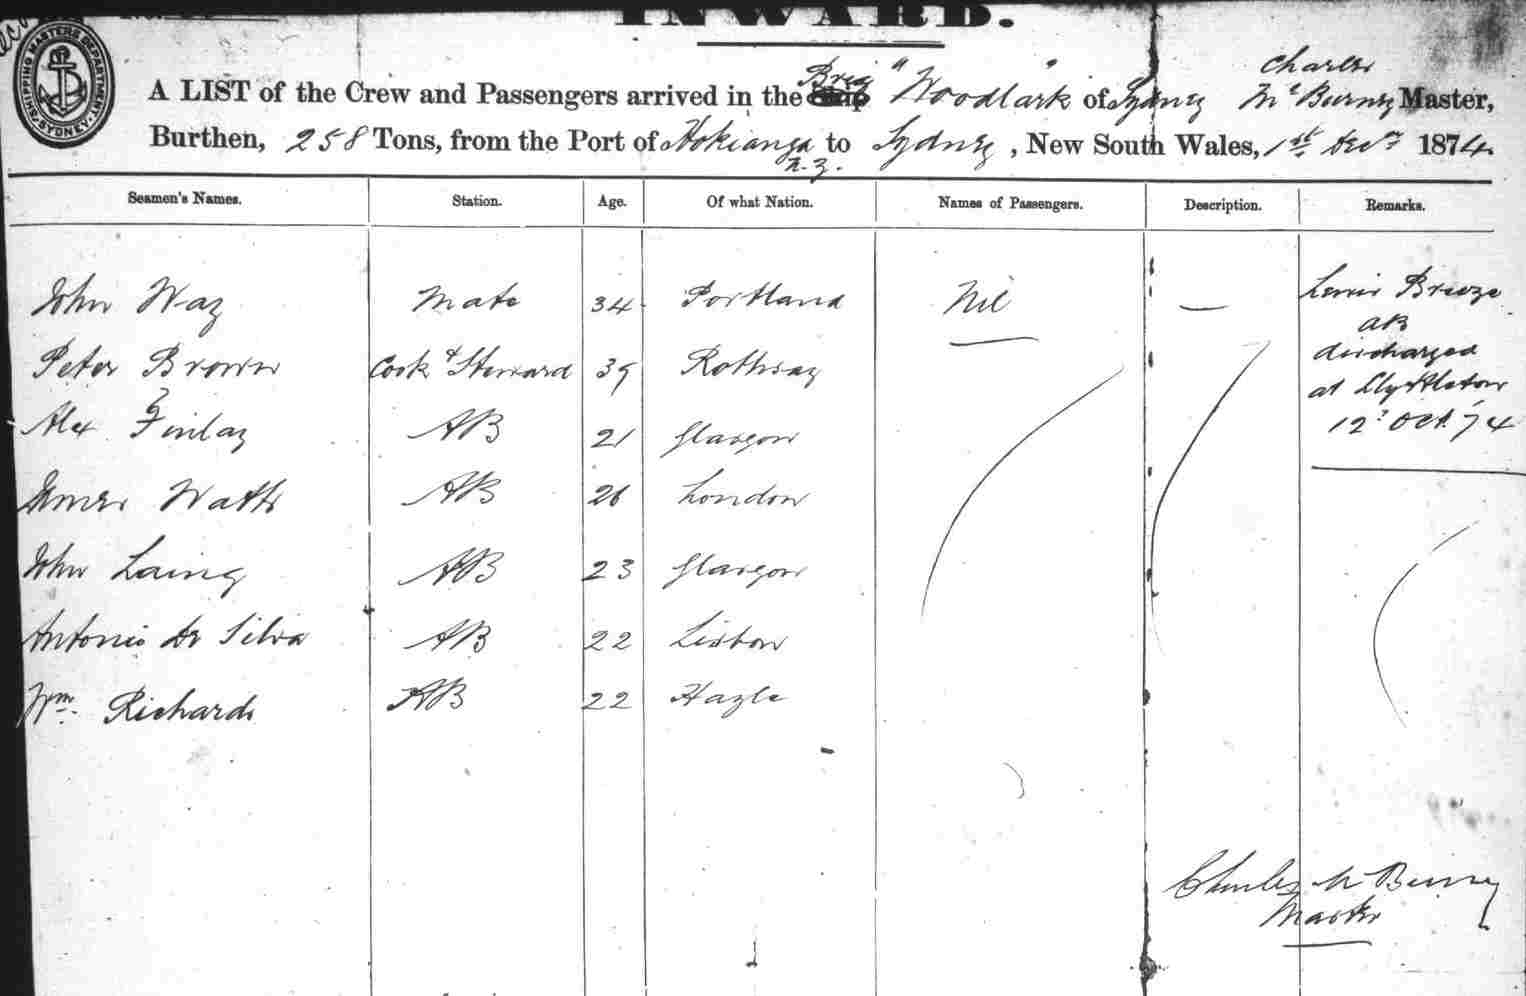 INWARD.
SHIPPING MASTERS DEPARTMENT SYDNEY
A LIST of the Crew and Passengers arrived in the Brig "Woodlark" of Sydney Charles McBurney Master,
Burthen, 258 Tons, from the Port of Hokianga N.Z. to Sydney, New South Wales, 1st Decr 1874
Seamen's Names. Station. Age. Of what Nation. Names of Passengers. Description. Remarks.
John Way Mate 34 Portland Nil — Lewis Breeze
AB
Peter Brown Cook & Steward 39 Rothsay discharged
at Llyttleton
Alex Finlay AB 21 Glasgow 12 Oct 74
James Watts AB 26 London
John Laing AB 23 Glasgow
Antonio De Silva AB 22 Lisbon
Wm Richards AB 22 Hayle
Charles McBurney
Master